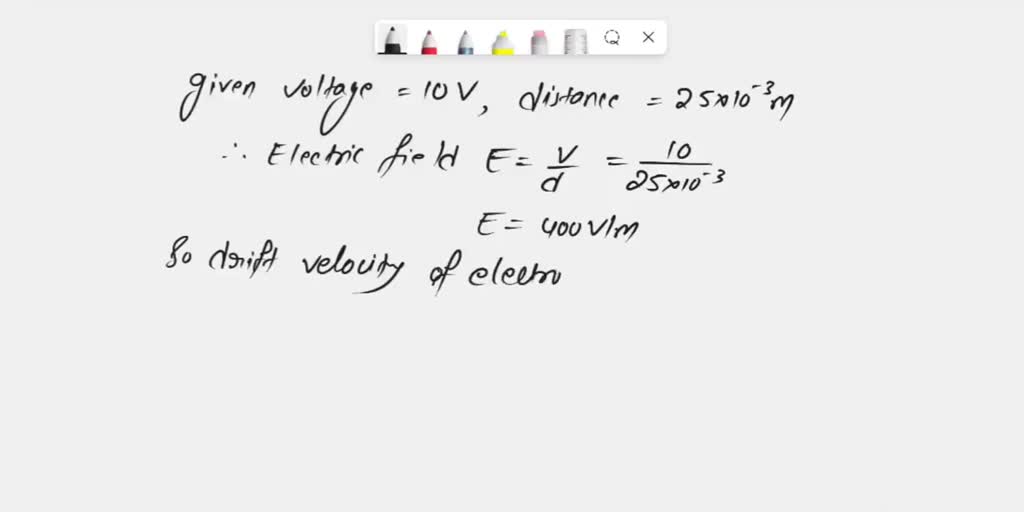 given voltage = 10 V, distance = 25×10⁻³m
∴ Electric field E = V/d = 10/25×10⁻³
E = 400 V/m
So drift velocity of electro